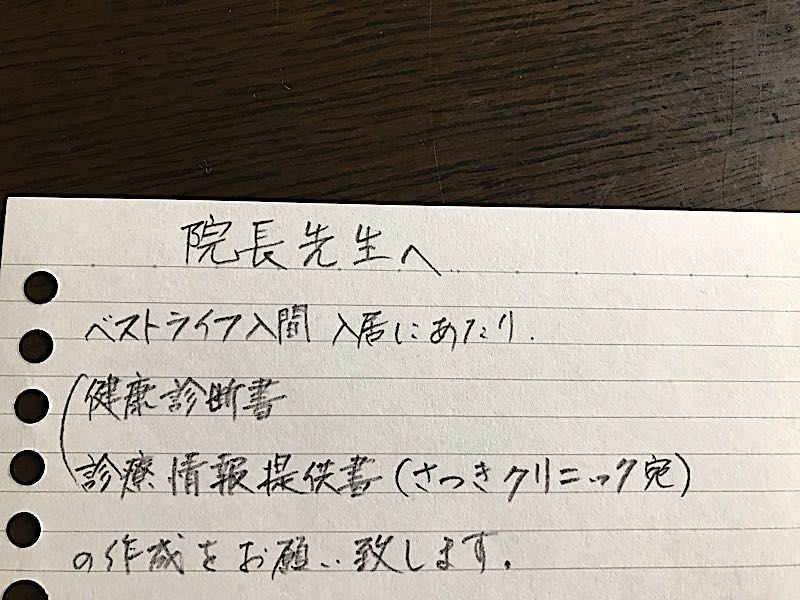 院長先生へ
ベストライフ入間 入居にあたり.
健康診断書
診療情報提供書(さつきクリニック宛)
の作成をお願い致します.